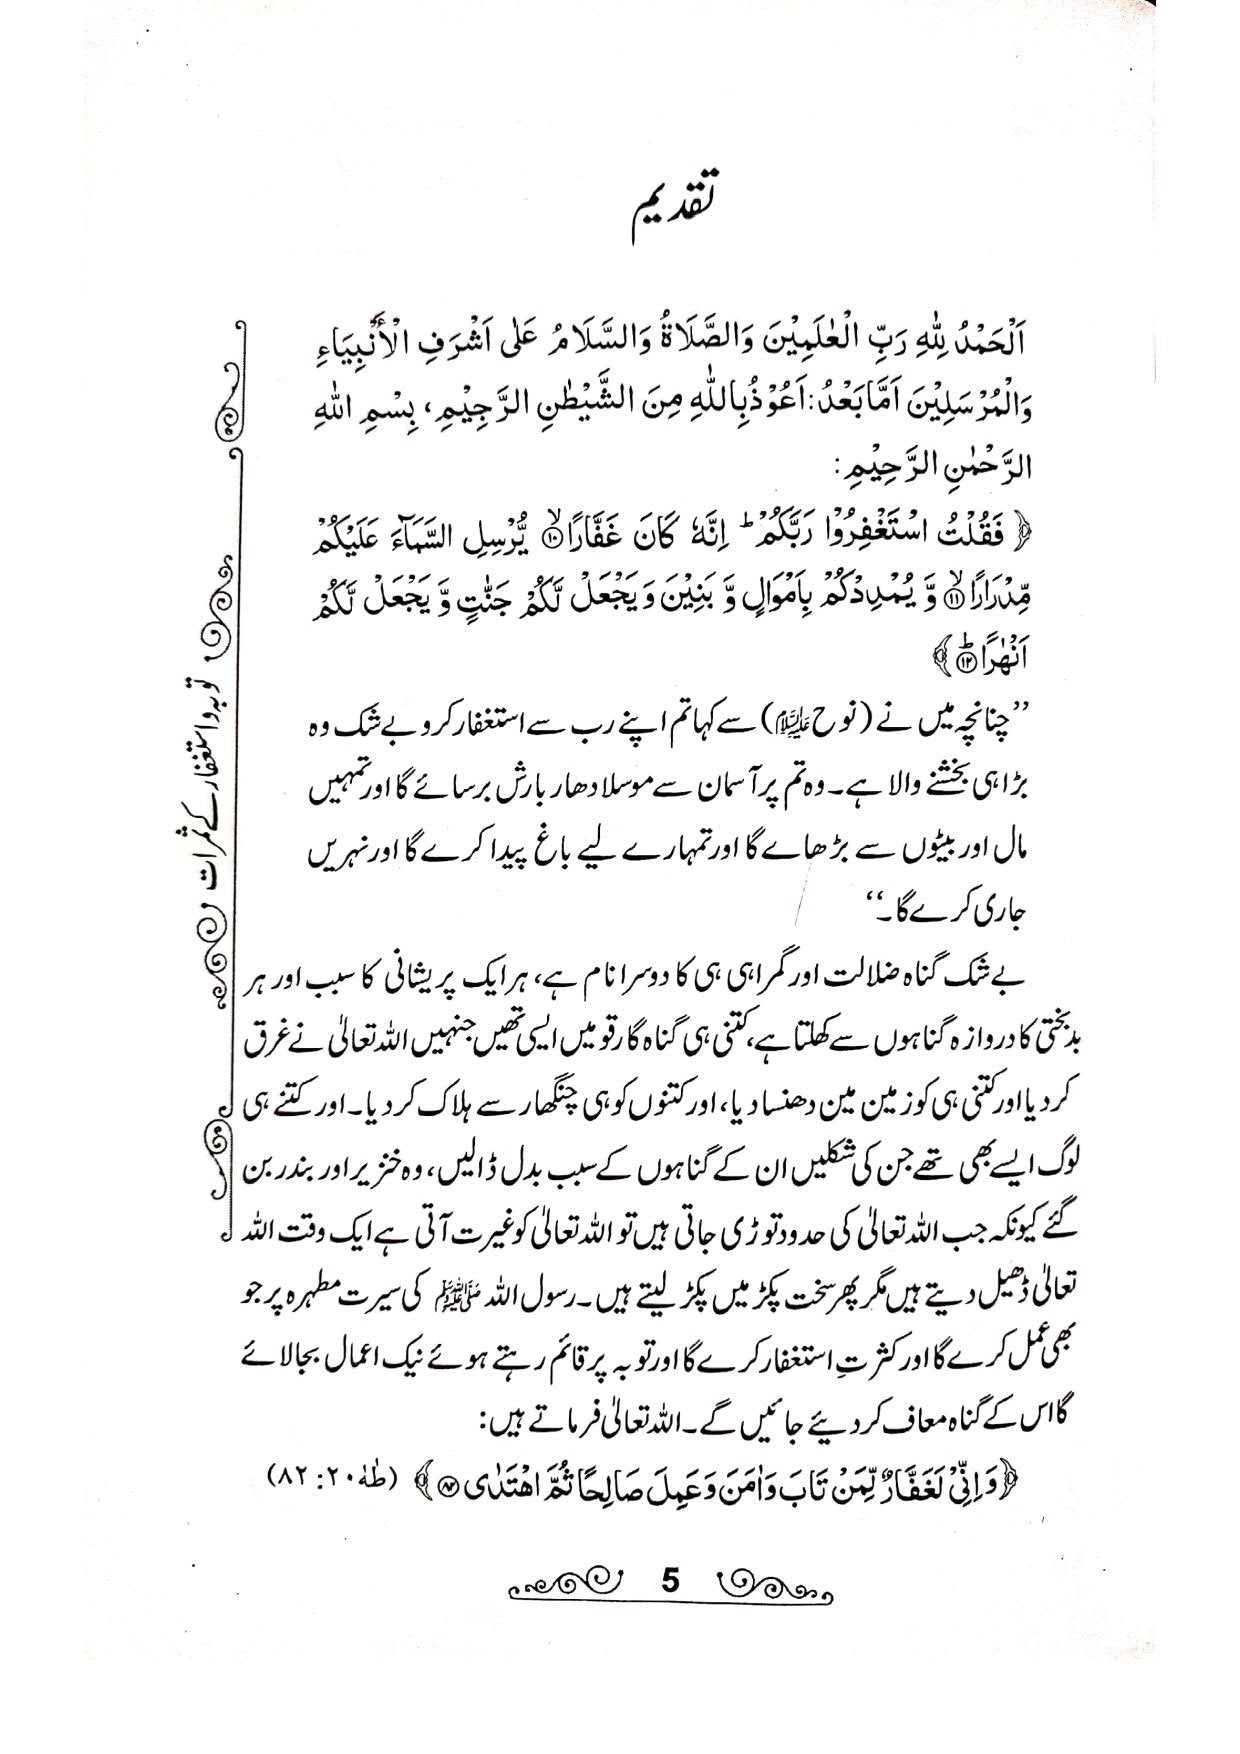 تقدیم
اَلْحَمْدُ لِلّٰهِ رَبِّ الْعٰلَمِيْنَ وَالصَّلَاةُ وَالسَّلَامُ عَلٰى اَشْرَفِ الْأَنْبِيَاءِ
وَالْمُرْسَلِيْنَ اَمَّا بَعْدُ: اَعُوْذُ بِاللّٰهِ مِنَ الشَّيْطٰنِ الرَّجِيْمِ، بِسْمِ اللّٰهِ
الرَّحْمٰنِ الرَّحِيْمِ:
﴿فَقُلْتُ اسْتَغْفِرُوْا رَبَّكُمْ ؕ اِنَّهٗ كَانَ غَفَّارًا ۙ۱۰ يُّرْسِلِ السَّمَآءَ عَلَيْكُمْ
مِّدْرَارًا ۙ۱۱ وَّ يُمْدِدْكُمْ بِاَمْوَالٍ وَّ بَنِيْنَ وَ يَجْعَلْ لَّكُمْ جَنّٰتٍ وَّ يَجْعَلْ لَّكُمْ
اَنْهٰرًا ؕ۱۲﴾
’’چنانچہ میں نے (نوح علیہ السلام) سے کہا تم اپنے رب سے استغفار کرو بے شک وہ
بڑا ہی بخشنے والا ہے۔ وہ تم پر آسمان سے موسلا دھار بارش برسائے گا اور تمہیں
مال اور بیٹوں سے بڑھاے گا اور تمہارے لیے باغ پیدا کرے گا اور نہریں
جاری کرے گا۔‘‘
بے شک گناہ ضلالت اور گمراہی ہی کا دوسرا نام ہے، ہر ایک پریشانی کا سبب اور ہر
بدبختی کا دروازہ گناہوں سے کھلتا ہے، کتنی ہی گناہ گار قومیں ایسی تھیں جنہیں اللہ تعالیٰ نے غرق
کر دیا اور کتنی ہی کو زمین مین دھنسا دیا، اور کتنوں کو ہی چنگھار سے ہلاک کر دیا۔ اور کتنے ہی
لوگ ایسے بھی تھے جن کی شکلیں ان کے گناہوں کے سبب بدل ڈالیں، وہ خنزیر اور بندر بن
گئے کیونکہ جب اللہ تعالیٰ کی حدود توڑی جاتی ہیں تو اللہ تعالیٰ کو غیرت آتی ہے ایک وقت اللہ
تعالیٰ ڈھیل دیتے ہیں مگر پھر سخت پکڑ میں پکڑ لیتے ہیں۔ رسول اللہ ﷺ کی سیرت مطہرہ پر جو
بھی عمل کرے گا اور کثرتِ استغفار کرے گا اور توبہ پر قائم رہتے ہوئے نیک اعمال بجالائے
گا اس کے گناہ معاف کر دیئے جائیں گے۔ اللہ تعالیٰ فرماتے ہیں:
﴿وَ اِنِّيْ لَغَفَّارٌ لِّمَنْ تَابَ وَ اٰمَنَ وَ عَمِلَ صَالِحًا ثُمَّ اهْتَدٰى ۸۲﴾ (طٰهٰ ۲۰: ۸۲)
توبہ و استغفار کے ثمرات
5